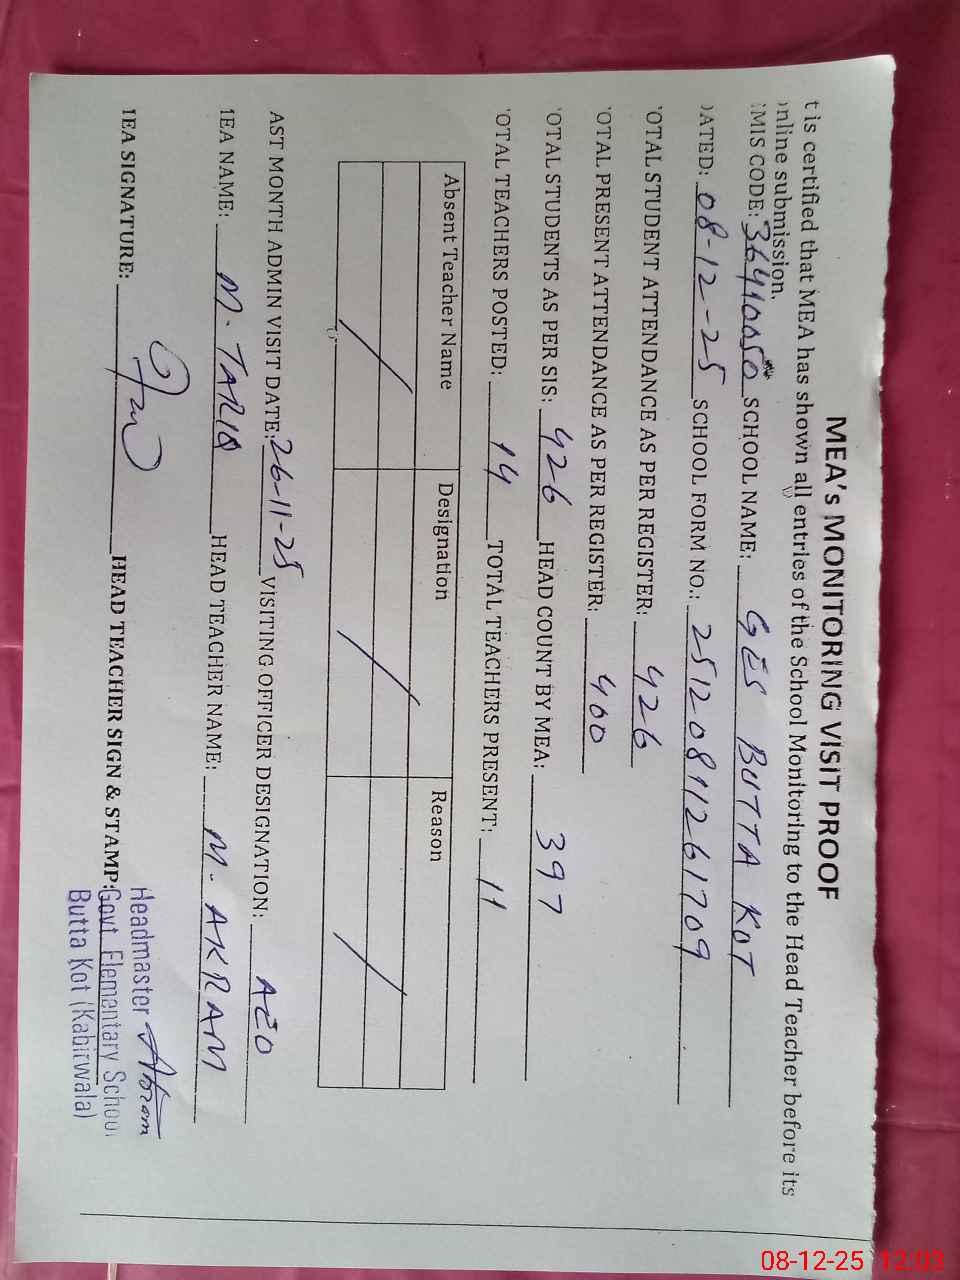 MEA's MONITORING VISIT PROOF
t is certified that MEA has shown all entries of the School Monitoring to the Head Teacher before its
nline submission.
MIS CODE: 36410050 SCHOOL NAME: GES BUTTA KOT
DATED: 08-12-25 SCHOOL FORM NO.: 25120811261709
OTAL STUDENT ATTENDANCE AS PER REGISTER: 426
OTAL PRESENT ATTENDANCE AS PER REGISTER: 400
OTAL STUDENTS AS PER SIS: 426 HEAD COUNT BY MEA: 397
OTAL TEACHERS POSTED: 14 TOTAL TEACHERS PRESENT: 11
Absent Teacher Name Designation Reason
AST MONTH ADMIN VISIT DATE: 26-11-25 VISITING OFFICER DESIGNATION: AEO
MEA NAME: M. TARIQ HEAD TEACHER NAME: M. AKRAM
MEA SIGNATURE: HEAD TEACHER SIGN & STAMP:
Headmaster Akram
Govt. Elementary School
Butta Kot (Kabirwala)
08-12-25 12:03